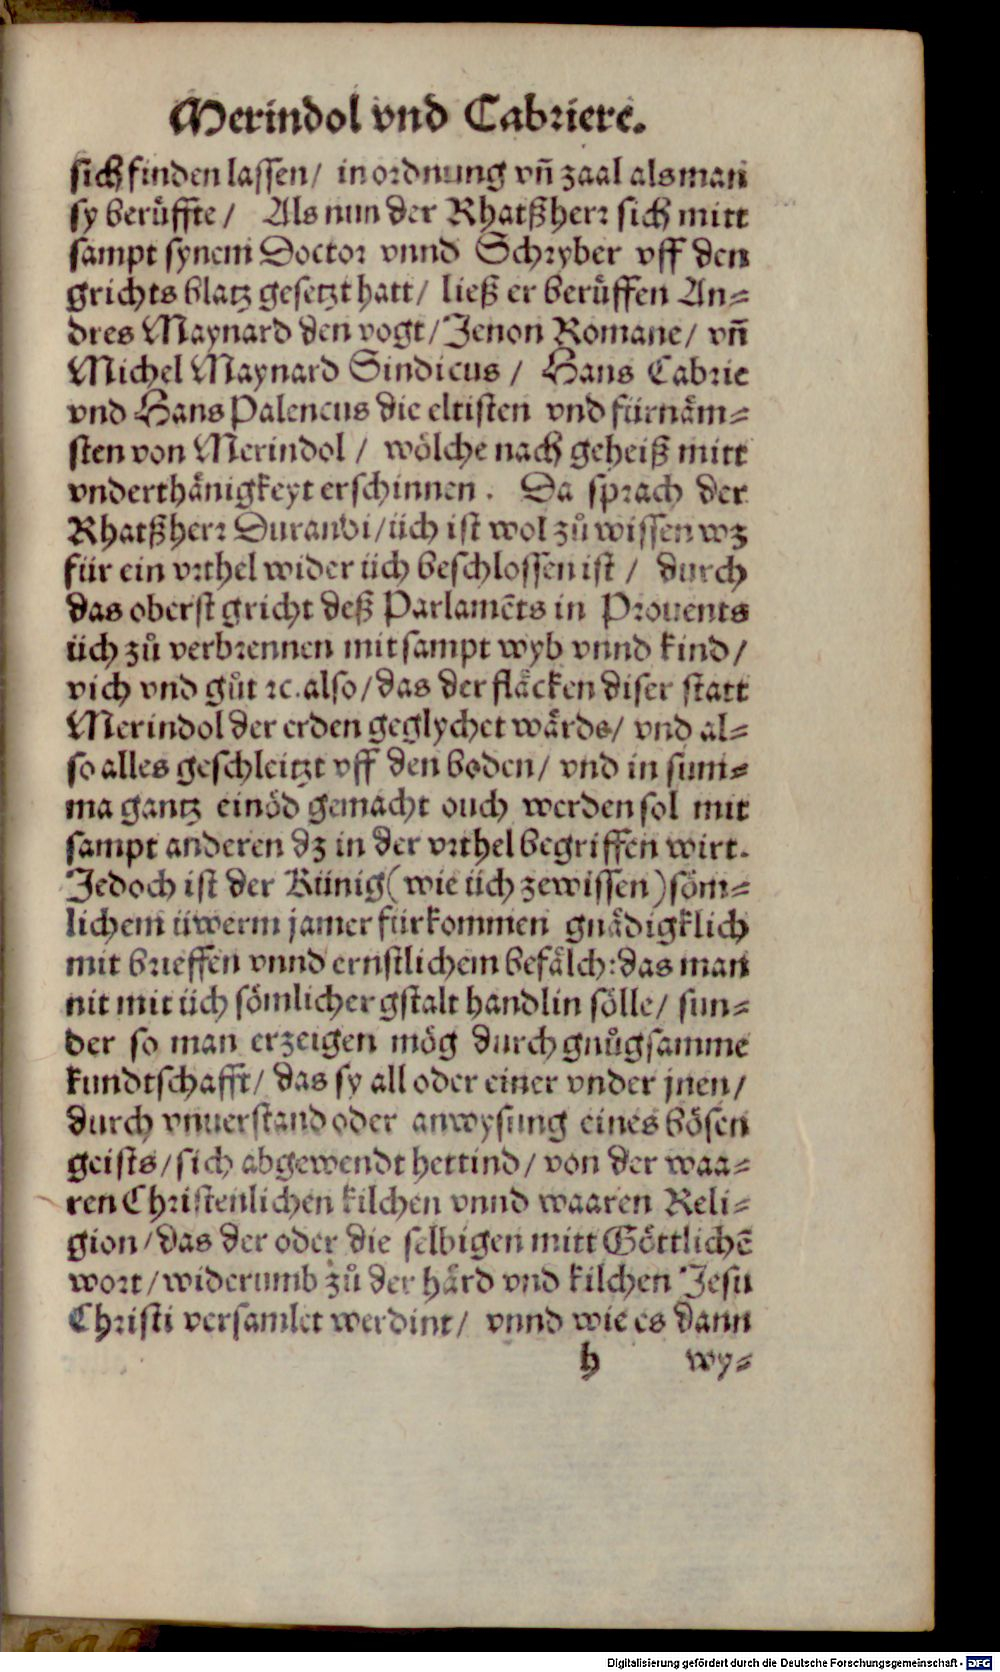 Merindol vnd Cabriere.
sich finden lassen/ in ordnung vñ zaal als man
sy berüffte/ Als nun der Rhatßherr sich mitt
sampt synem Doctor vnnd Schryber vff den
grichts blatz gesetzt hatt/ ließ er berüffen An⸗
dres Maynard den vogt/ Jenon Romane/ vñ
Michel Maynard Sindicus/ Hans Cabrie
vnd Hans Palencus die eltisten vnd fürnäm⸗
sten von Merindol/ wölche nach geheiß mitt
vnderthänigkeyt erschinnen. Da sprach der
Rhatßherr Durandi/ üch ist wol zů wissen wz
für ein vrthel wider üch beschlossen ist/ durch
das oberst gricht deß Parlamẽts in Prouents
üch zů verbrennen mit sampt wyb vnnd kind/
vich vnd gůt ꝛc. also/ das der fläcken diser statt
Merindol der erden geglychet wärds/ vnd al⸗
so alles geschleitzt vff den boden/ vnd in sum⸗
ma gantz einöd gemacht ouch werden sol mit
sampt anderen dz in der vrthel begriffen wirt.
Jedoch ist der Künig (wie üch zewissen) söm⸗
lichem üwerm jamer fürkommen gnädigklich
mit brieffen vnnd ernstlichem befälch: das man
nit mit üch sömlicher gstalt handlin sölle/ sun⸗
der so man erzeigen mög durch gnůgsamme
kundtschafft/ das sy all oder einer vnder jnen/
durch vnuerstand oder anwysung eines bösen
geists/ sich abgewendt hettind/ von der waa⸗
ren Christenlichen kilchen vnnd waaren Reli⸗
gion/ das der oder die selbigen mitt Göttlichẽ
wort/ widerumb zů der härd vnd kilchen Jesu
Christi versamlet werdint/ vnnd wie es dann
h wy⸗
Digitalisierung gefördert durch die Deutsche Forschungsgemeinschaft - DFG